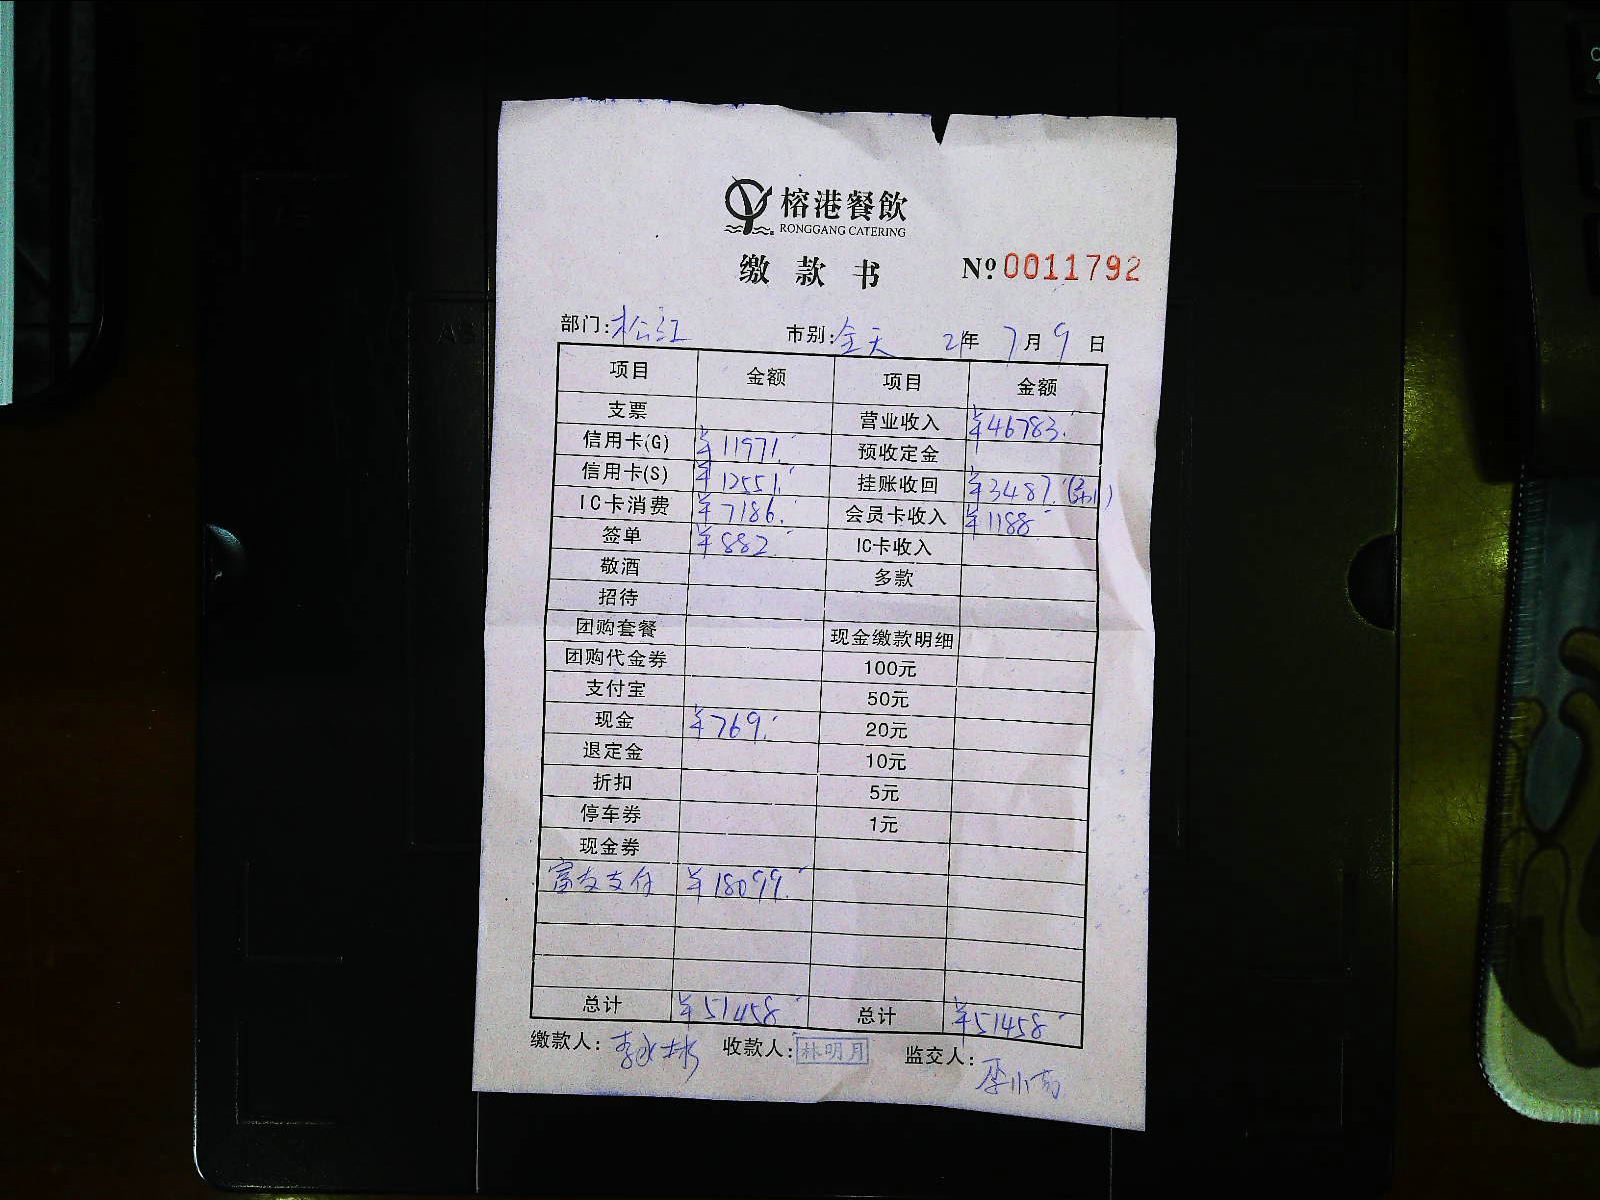 榕港餐飲
RONGGANG CATERING
缴款书 Nº 0011792
部门:松江 市别:全天 21年 7月 9日
项目 金额 项目 金额
支票 营业收入 ¥46783.
信用卡(G) ¥11971. 预收定金
信用卡(S) ¥12551. 挂账收回 ¥3487.
IC卡消费 ¥7186. 会员卡收入 ¥1188
签单 ¥882. IC卡收入
敬酒 多款
招待
团购套餐 现金缴款明细
团购代金券 100元
支付宝 50元
现金 ¥769. 20元
退定金 10元
折扣 5元
停车券 1元
现金券
富友支付 ¥18099.
总计 ¥51458 总计 ¥51458
缴款人: 收款人:林明月 监交人: